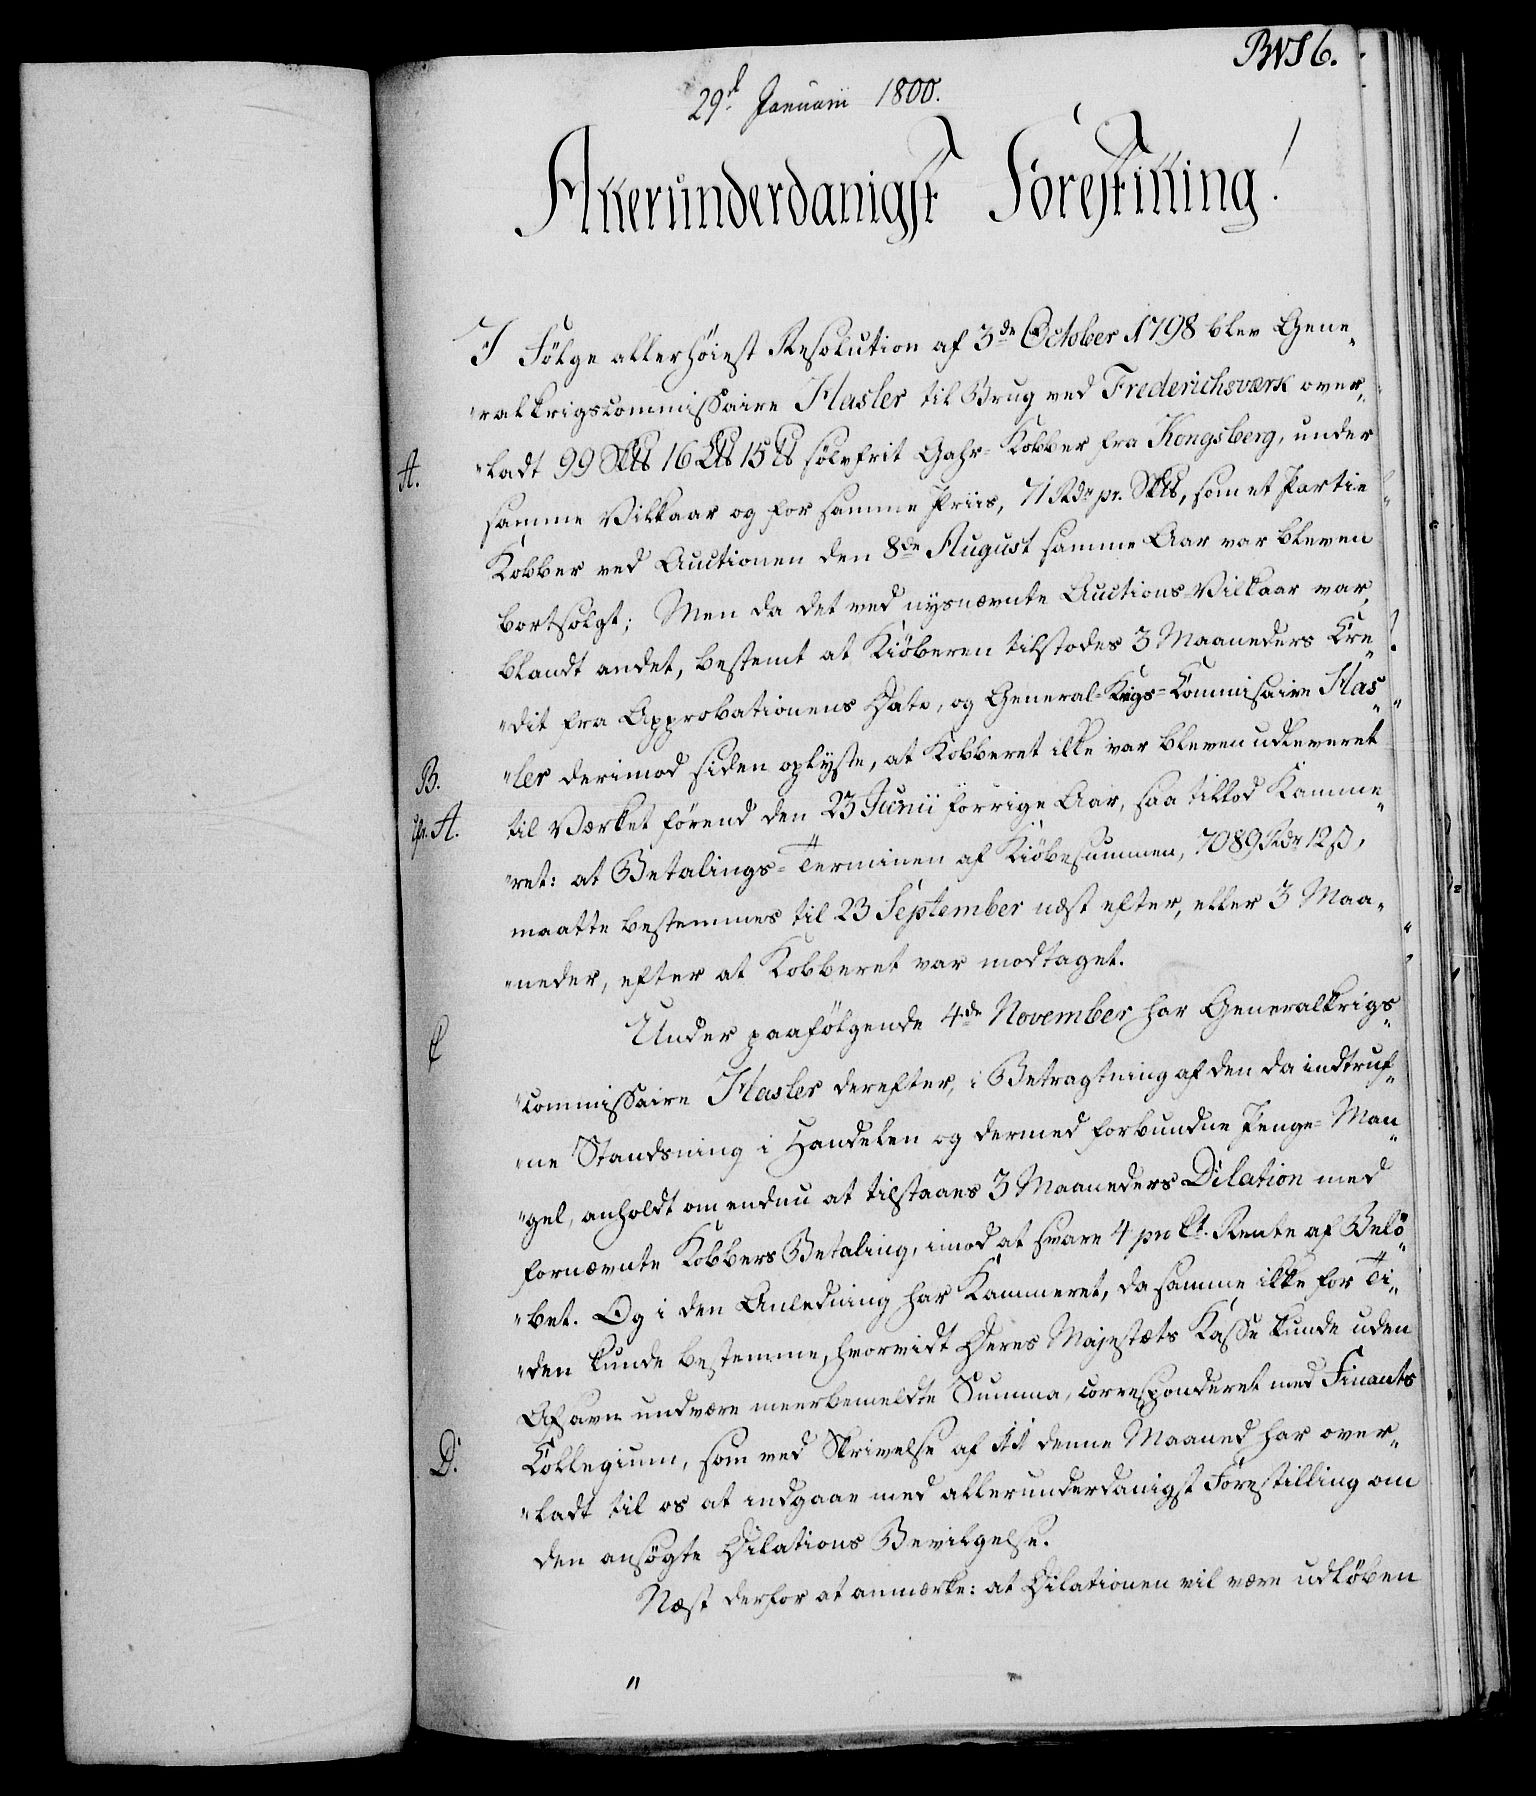 BVS 6.
29d Januarii 1800.
Allerunderdanigst Forestilling!
I Fölge allerhöiest Resolution af 3de October 1798 blev Gene„
„ralkrigscommissaire Hasler til Brug ved Frederichsværk over„
A. „ladt 99 S℔ 16 L℔ 15 ℔ sölvfrit Gahr-Kobber fra Kongsberg, under
samme Vilkaar og for samme Priis, 71 Rdr pr. S℔, som et Partie
Kobber ved Auctionen den 8de August samme Aar var bleven
bortsolgt; Men da det ved nysnævnte Auctions-Vilkaar var,
blandt andet, bestemt at Kiöberen tilstodes 3 Maaneders Cre„
„dit fra Approbationens Dato, og General-Krigs-Commisaire Has„
B. „ler derimod siden oplyste, at Kobberet ikke var bleven udleveret
A. til Værket förend den 23 Junii forrige Aar, saa tillod Kamme„
„ret: at Betalings-Terminen af Kiöbesummen, 7089 Rdr 12 ß,
maatte bestemmes til 23 September næst efter, eller 3 Maa„
„neder, efter at Kobberet var modtaget.
C Under paafölgende 4de November har Generalkrigs„
„commissaire Hasler derefter, i Betragtning af den da indtruf„
„ne Standsning i Handelen og dermed forbundne Penge-Man„
„gel, anholdt om endnu at tilstaaes 3 Maaneders Dilation med
fornævnte Kobbers Betaling, imod at svare 4 pro Ct. Rente af Belö„
„bet. Og i den Anledning har Kammeret, da samme ikke for Ti„
„den kunde bestemme, hvorvidt Deres Majestæts Kasse kunde uden
Afsavn undvære meerbemeldte Summa, corresponderet med Finants
D. Collegium, som ved Skrivelse af 11 denne Maaned har over„
„ladt til os at indgaae med allerunderdanigst Forestilling om
den ansögte Dilations Bevilgelse.
Næst derfor at anmærke: at Dilationen vil være udlöben
„